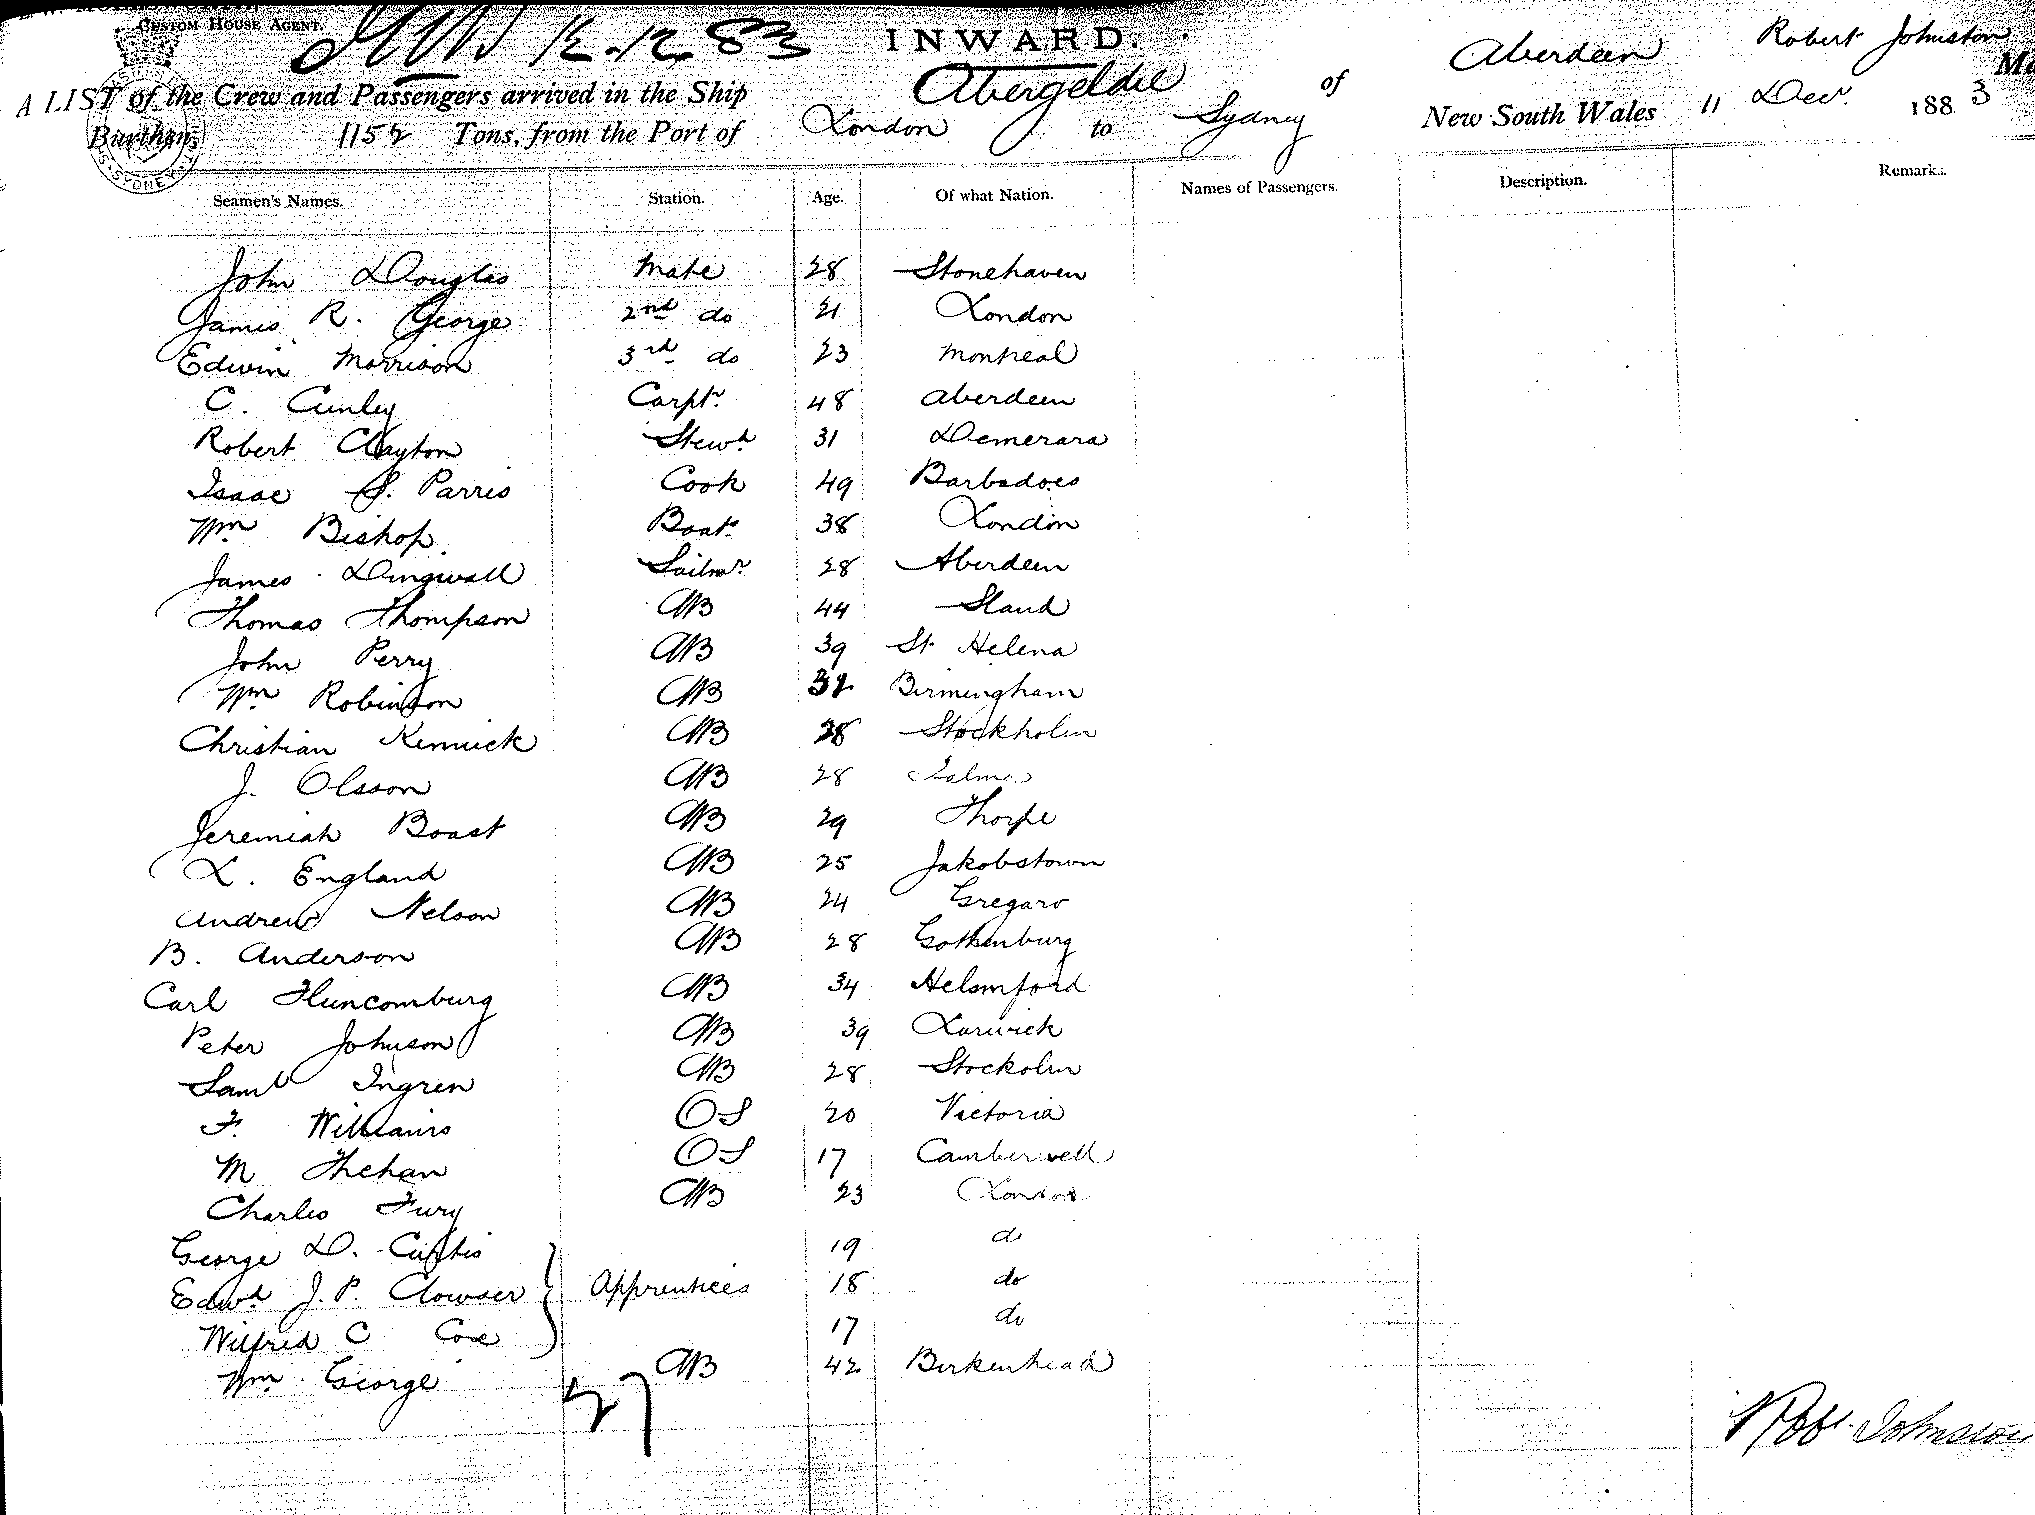 CUSTOM HOUSE AGENT.
12.12.83 INWARD.
A LIST of the Crew and Passengers arrived in the Ship Abergeldie of Aberdeen Robert Johnston
Burthen, 1152 Tons, from the Port of London to Sydney New South Wales 11 Dec. 1883
Seamen's Names. Station. Age. Of what Nation. Names of Passengers. Description. Remarks.
John Douglas Mate 28 Stonehaven
James R. George 2nd do 21 London
Edwin Morrison 3rd do 23 Montreal
C. Cunley Carptr. 48 Aberdeen
Robert Clayton Stewd. 31 Demerara
Isaac S. Parris Cook 49 Barbadoes
Wm Bishop. Boats. 38 London
James Dingwall Sailmr. 28 Aberdeen
Thomas Thompson AB 44 Sland
John Perry AB 39 St Helena
Wm Robinson AB 32 Birmingham
Christian Kennick AB 28 Stockholm
J. Olsson AB 28
Jeremiah Boast AB 29 Thorpe
L. England AB 25 Jakobstown
Andrew Nelson AB 24 Gregaro
B. Anderson AB 28 Gothenburg
Carl Fluncomburg AB 34 Helsmford
Peter Johnson AB 39 Larwick
Saml Ingren AB 28 Stockolm
F. Williams OS 20 Victoria
M Thehan OS 17 Camberwell
Charles Fury AB 23 London
George D. Curtis 19 do
Edwd J. P. Clowser Apprentices 18 do
Wilfred C Coxe 17 do
Wm. George AB 42 Birkenhead
27
Robt. Johnston